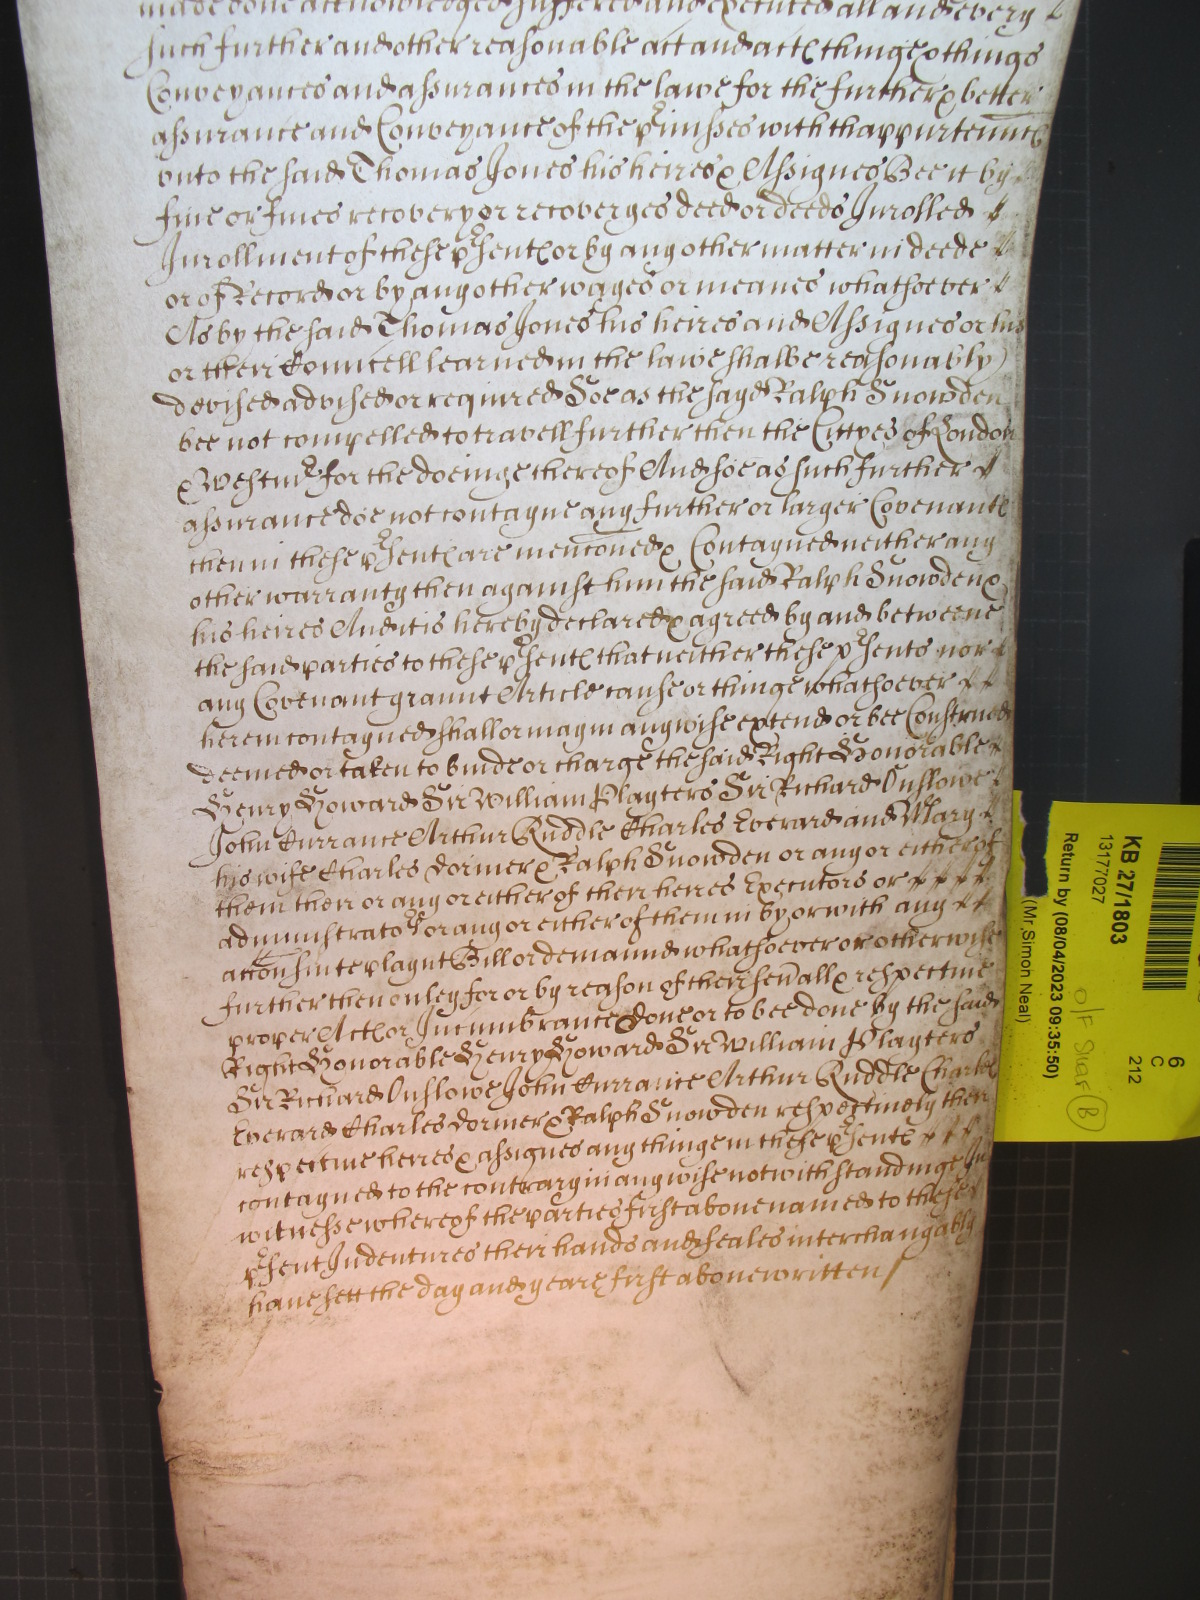 made done acknowledged suffered and executed all and every
such further and other reasonable act and actℓ thinge & things
Conveyances and assurances in the lawe for the further & better
assurance and Conveyance of the pͬmisses with thappurtennᵃⁿcℓ
vnto the said Thomas Jones his heires & Assignes Bee it by
fine or fines recovery or recoveryes deed or deeds Inrolled
Inrollment of these pͬsentℓ or by any other matter in deede
or of Record or by any other wayes or meanes whatsoever
As by the said Thomas Jones his heires and Assignes or his
or their Councell learned in the lawe shalbe reasonably
devised advised or required Soe as the sayd Ralph Snowden
bee not compelled to travell further then the Cittyes of London
& Westmͬ for the doeinge thereof And soe as such further
assurance doe not contayne any further or larger Covenantℓ
then in these pͬsentℓ are menconed & Contayned neither any
other warranty then against him the said Ralph Snowden &
his heires And it is hereby declared & agreed by and betweene
the said parties to these pͬsentℓ that neither these pͬsents nor
any Covenant graunt Article cause or thinge whatsoever
herein contayned shall or may in any wise extend or bee Construed
deemed or taken to binde or charge the said Right Honorable
Henry Howard Sir William Playters Sir Richard Onslowe
John Currance Arthur Ruddle Charles Everard and Mary
his wife Charles Dormer & Ralph Snowden or any or either of
them then or any or either of their heires Executors or
administratoͬ or any or either of them in by or with any
accon sute playnt Bill or demaund whatsoever or otherwise
further then onley for or by reason of their sevall & respective
proper Actℓ or Incumbrance done or to bee done by the said
Right Honorable Henry Howard Sir William Playters
Sir Richard Onslowe John Currance Arthur Ruddle Charles
Everard Charles Dormer & Ralph Snowden respectively their
respective heires & assignes any thinge in these pͬsentℓ
contayned to the contrary in any wise notwithstandinge In
witnesse whereof the parties first above named to these
pͬsent Indentures their hands and seales interchangably
have sett the day and yeare first above written
KB 27/1803
13177027
Return by (08/04/2023 09:35:50)
(Mr, Simon Neal)
6
C
212
O/F Shelf B